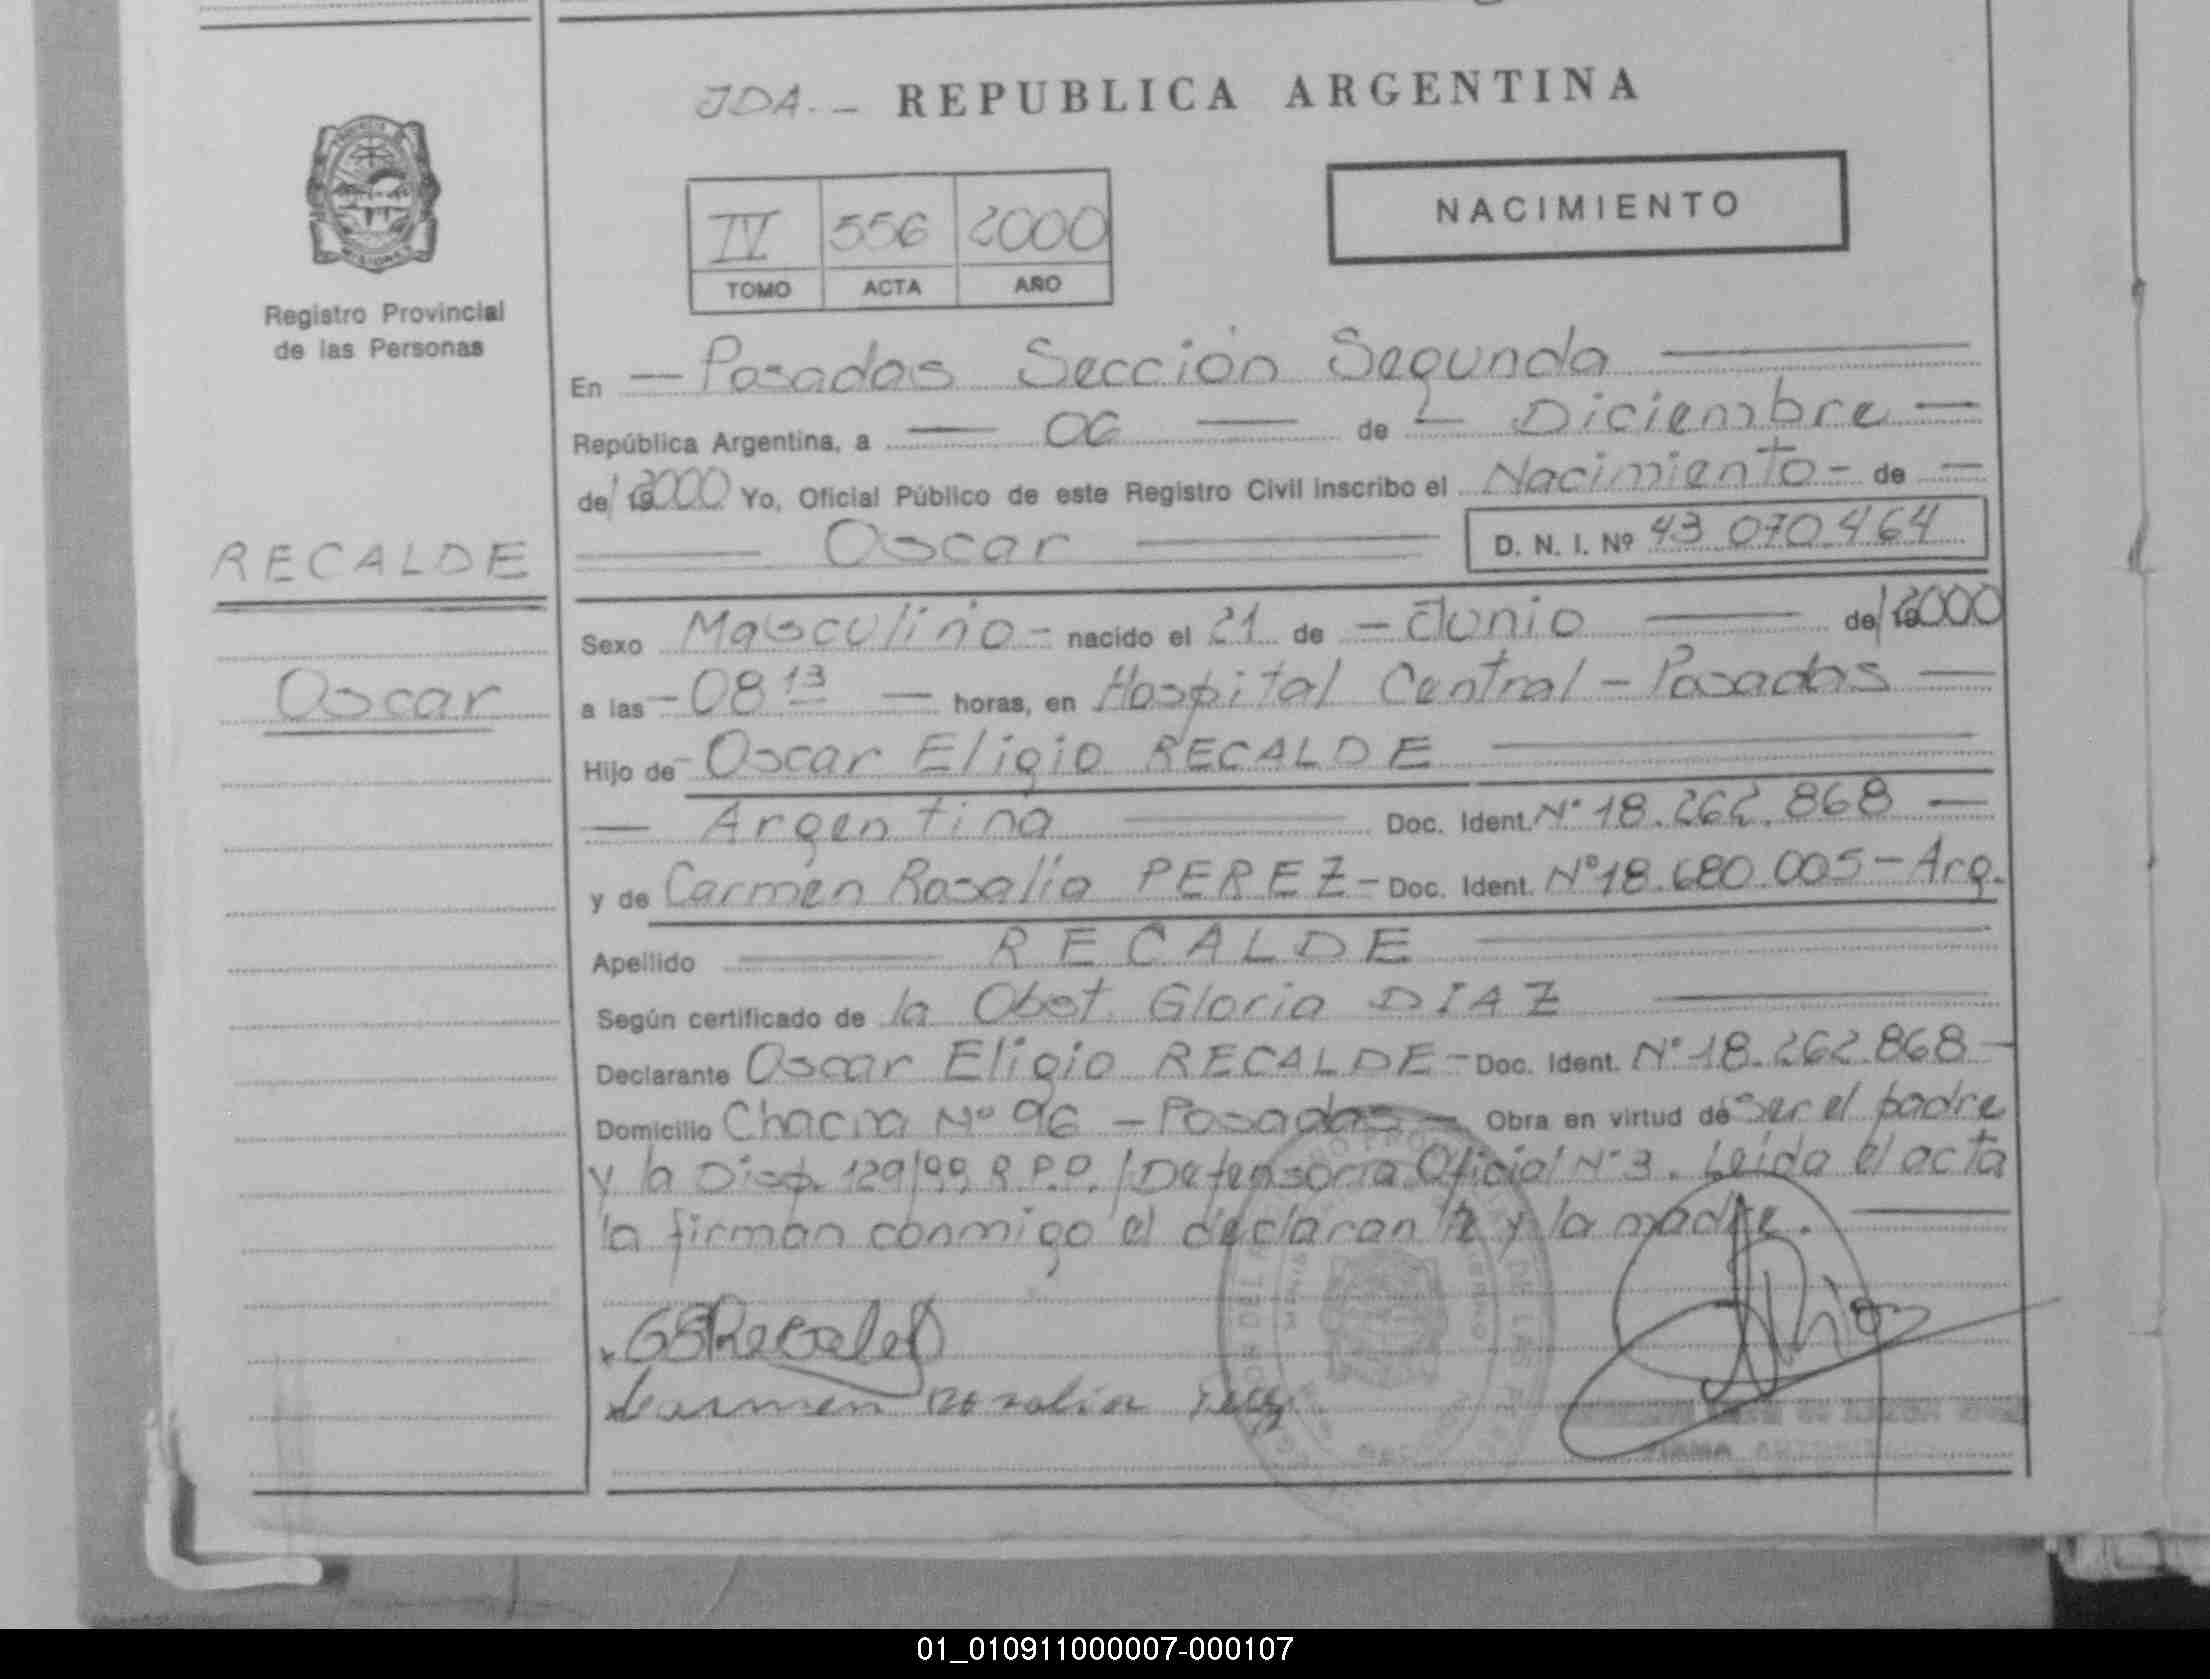 JDA.- REPUBLICA ARGENTINA
IV 556 2000
TOMO ACTA AÑO
NACIMIENTO
Registro Provincial
de las Personas
En — Posadas Sección Segunda —
República Argentina, a — 06 — de — Diciembre —
de/ 2000 Yo, Oficial Público de este Registro Civil inscribo el Nacimiento - de —
Oscar D. N. I. Nº 43 070.464
RECALDE
Oscar
Sexo Masculino - nacido el 21 de - Junio — de/ 2000
a las - 08 13 — horas, en Hospital Central - Posadas —
Hijo de Oscar Eligio RECALDE
— Argentina — Doc. Ident. Nº 18.262.868 —
y de Carmen Rosalía PEREZ - Doc. Ident. Nº 18.680.005 - Arg.
Apellido — RECALDE
Según certificado de la Obst. Gloria DIAZ
Declarante Oscar Eligio RECALDE - Doc. Ident. Nº 18.262.868 -
Domicilio Chacra Nº 96 - Posadas - Obra en virtud de ser el padre
y la Disp. 129/99 R.P.P./Defensoria Oficial Nº 3. Leída el acta
la firman conmigo el declarante y la madre. —
Carmen Rosalia
DE LAS
FIRMA
01_010911000007-000107